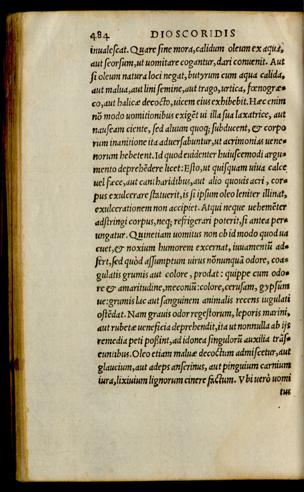 484 DIOSCORIDIS
inualescat. Quare sine mora, calidum oleum ex aqua,
aut seorsum, ut uomitare cogantur, dari conuenit. Aut
si oleum natura loci negat, butyrum cum aqua calida,
aut malua, aut lini semine, aut trago, urtica, fœnogræ-
co, aut halicæ decocto, uicem eius exhibebit. Hæc enim
nō modo uomitionibus exigēt ui illa sua laxatrice, aut
nauseam ciente, sed aluum quoq; subducent, & corpo
rum inanitione ita aduersabuntur, ut acrimonias uene-
norum hebetent. Id quod euidenter huiuscemodi argu-
mento deprehēdere licet: Esto, ut quispiam uiua calce
uel fæce, aut cantharidibus, aut alio quouis acri, cor-
pus exulcerare statuerit, is si ipsum oleo leniter illinat,
exulcerationem non accipiet. Atqui neque uehemēter
adstringi corpus, neq; refrigerari poterit, si antea per-
ungatur. Quinetiam uomitus non ob id modo quod ua
cuet, & noxium humorem excernat, iuuamentū ad-
fert, sed quòd assumptum uirus nōnunquā odore, coa-
gulatis grumis aut colore, prodat: quippe cum odo-
re & amaritudine, meconiū: colore, cerusam, gypsum
ue: grumis lac aut sanguinem animalis recens iugulati
ostēdat. Nam grauis odor regestorum, leporis marini,
aut rubetæ ueneficia deprehendit, ita ut nonnulla ab ijs
remedia peti possint, ad idonea singulorū auxilia trās-
euntibus. Oleo etiam maluæ decoctum admiscetur, aut
glaucium, aut adeps anserinus, aut pinguium carnium
iura, lixiuium lignorum cinere factum. Vbi uerò uomi
tus